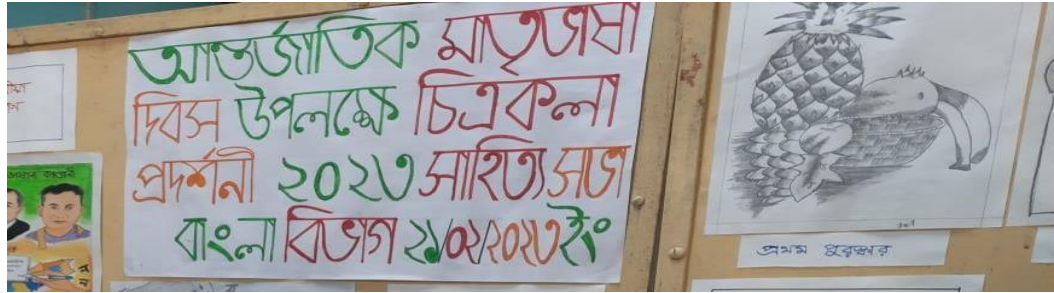 আন্তর্জাতিক মাতৃভাষা
দিবস উপলক্ষে চিত্রকলা
প্রদর্শনী ২০২৩ সাহিত্য সভা
বাংলা বিভাগ ২১/০২/২০২৩ইং
প্রথম পুরস্কার